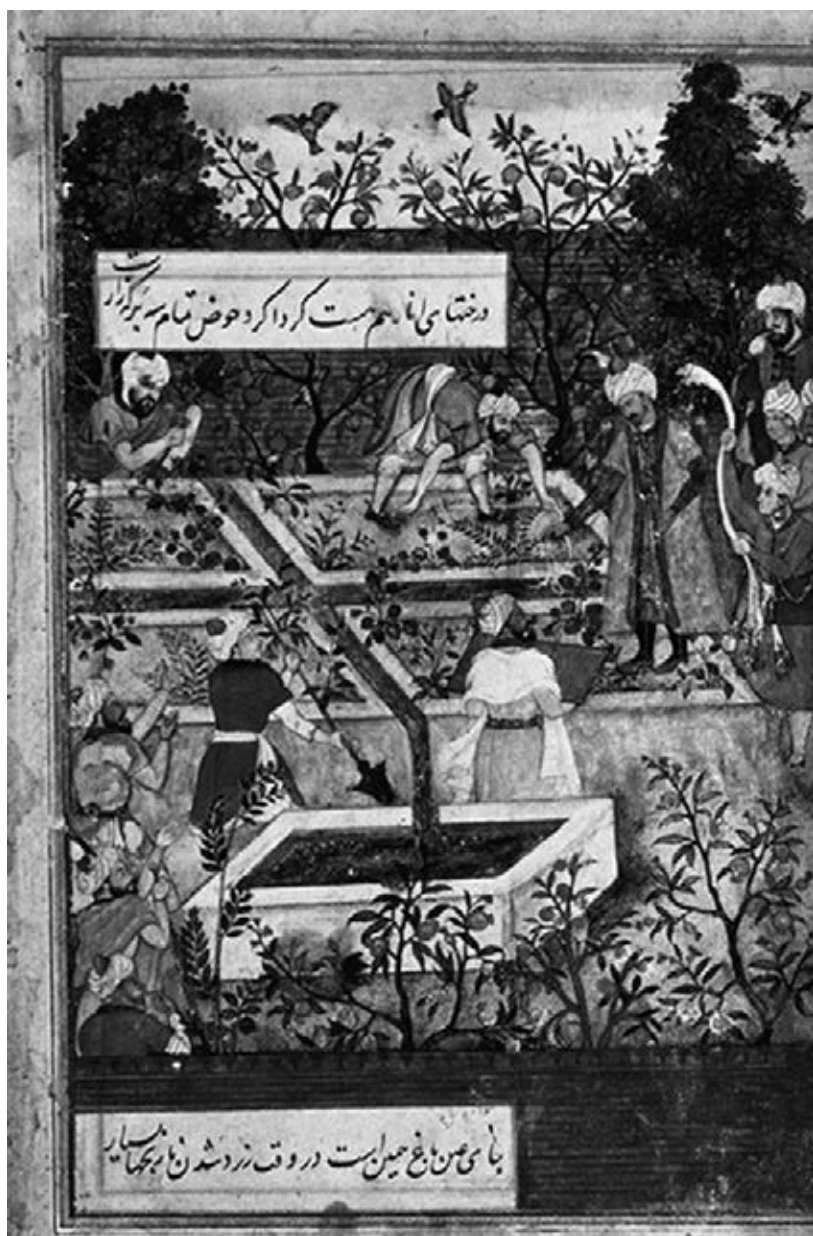 درختهای انار هم هست کرداکرد حوض تمام سه برکه زار است
جای عین باغ همین است در وقت زرد شدن نارنجها بسیار